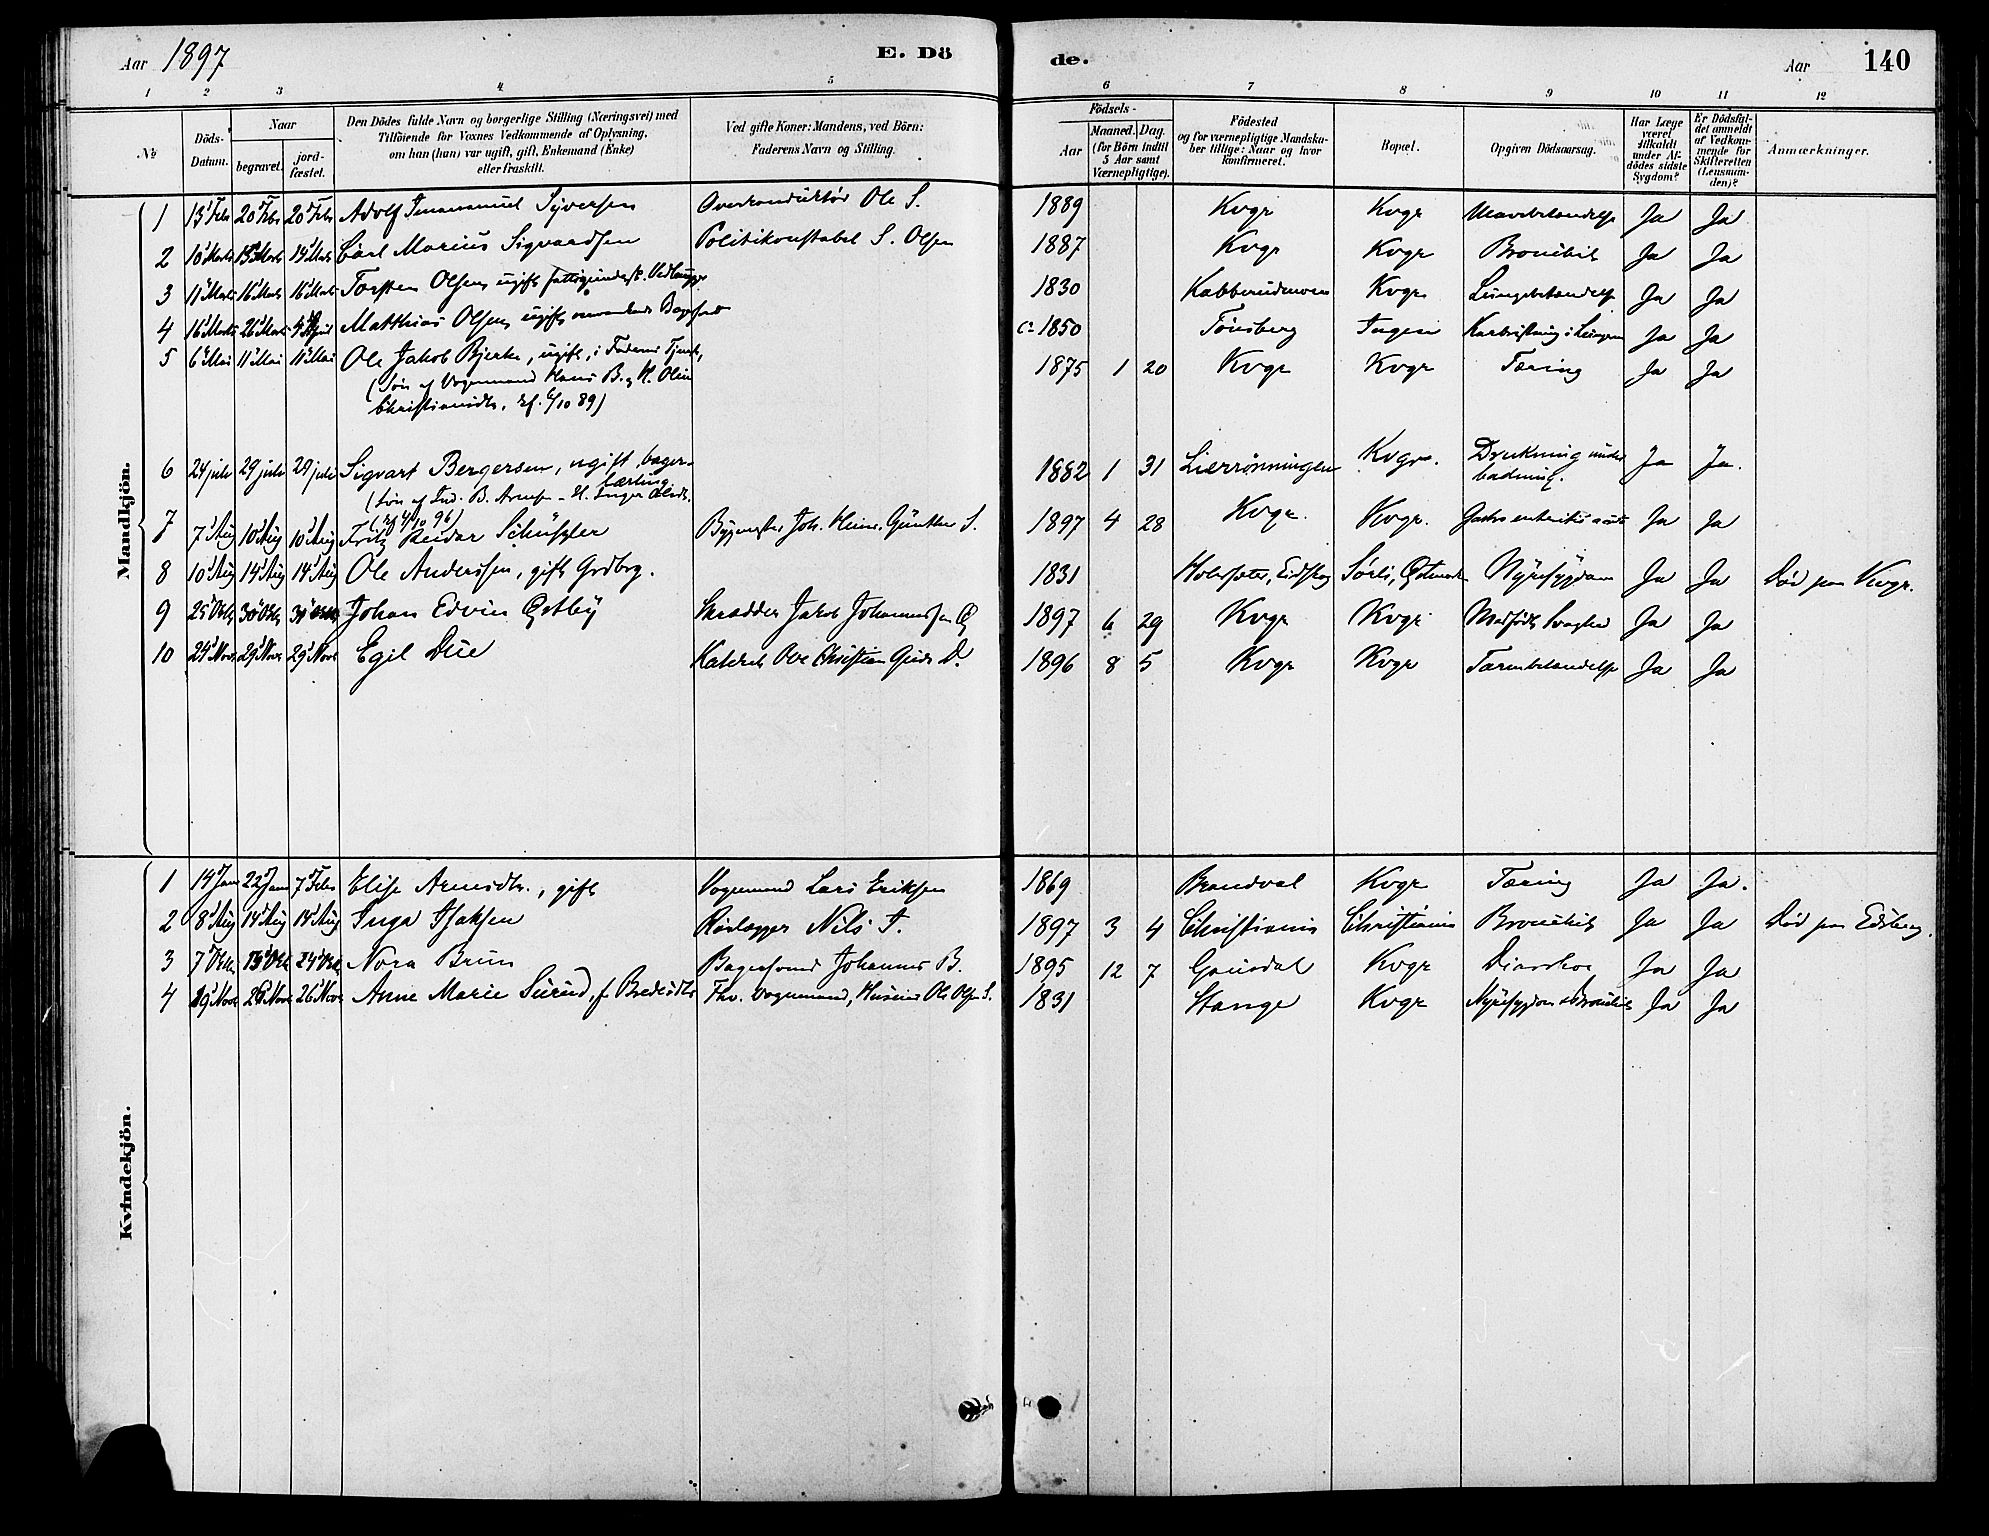 Aar 1897 E. Dö de. Aar 140
1 2 3 4 5 6 7 8 9 10 11 12
№
Döds-Datum.
Naar
begravet.
jordfæstet.
Den Dödes fulde Navn og borgerlige Stilling (Næringsvei) med
Tilföiende for Voxnes Vedkommende af Oplysning,
om han (hun) var ugift, gift, Enkemand (Enke)
eller fraskilt.
Ved gifte Koner: Mandens, ved Börn:
Faderens Navn og Stilling.
Födsels-
Aar
Maaned. Dag.
(for Börn indtil
5 Aar samt
Værnepligtige).
Födested
og for værnepligtige Mandskaber tillige: Naar og hvor
konfirmeret.
Bopæl.
Opgiven Dödsaarsag.
Har Læge
været
tilkaldt
under Afdödes sidste
Sygdom?
Er Dödsfaldet anmeldt
af Vedkommende for
Skifteretten
(Lensmanden)?
Anmærkninger.
Mandkjön.
1 13 Febr 20 Febr 20 Febr Adolf Immanuel Syversen Overkonduktör Ole S. 1889 Kvgr Kvgr Ja Ja
2 10 Marts 19 Marts Carl Marius Sigvardsen Politikonstabel S. Olsen 1887 Kvgr Kvgr Bronkit Ja Ja
3 11 Marts 16 Marts 16 Marts Torsten Olsen, ugift 1830 Kvgr Lungebetændelse Ja Ja
4 16 Marts 26 Marts 4 April Matthias Olsen, ugift Ca 1850 Tönsberg Ingen Ja Ja
5 6 Mai 11 Mai 11 Mai Ole Jakob Bjerke, ugift, i Faderens Tjeneste,
(Sön af Vognmand Hans B. og H. Oline
Christiansdtr. 6/10 89)
1875 1 20 Kvgr Kvgr Tæring Ja Ja
6 24 juli 29 juli 29 juli Sigvart Bergersen, ugift, bagerlærling
(Sön af Ind. B. Arnesen - H. Inger Olsdtr.
4/10 96)
1882 1 31 Lierrönningen Kvgr. Drukning under
badning. Ja Ja.
7 7 Aug 10 Aug 10 Aug Fritz Reidar Schüssler Bygmester Joh. Heinr. Günther S. 1897 4 28 Kvgr. Kvgr. Ja Ja
8 10 Aug 14 Aug 14 Aug Ole Anderssen, gift Grdbrg. 1831 Eidskog Nyresygdom Ja Ja Död paa Kvgr.
9 25 Okt 30 Okt Johan Edvin Östby Skrædder Jakob Johannessen Ö 1897 6 29 Kvgr Kvgr Medfödt Svaghed Ja Ja
10 24 Nov 29 Nov 29 Nov Egil Due Ove Christian D. 1896 8 5 Kvgr Kvgr Tarmbetændelse Ja Ja
Kvindekjön.
1 14 Jan 22 Jan 7 Febr Elise Arnesdtr., gift Vognmand Lars Eriksen 1869 Brandval Kvgr Tæring Ja Ja.
2 8 Aug 14 Aug 14 Aug Inga Isaksen Rörlægger Nils I. 1897 3 4 Christiania Christiania Bronkit Ja Ja Död paa Edsberg.
3 7 Okt 13 Okt 24 Okt Nora Brun Bagersvend Johannes B. 1895 12 7 Gausdal Kvgr Diarrhoe Ja Ja
4 19 Nov 26 Nov 26 Nov Anne Marie Surud, f. Bredesdtr Fhv. Vognmand, Huseier Ole Olsen S. 1831 Stange Kvgr Nyresygdom Bronkit Ja Ja